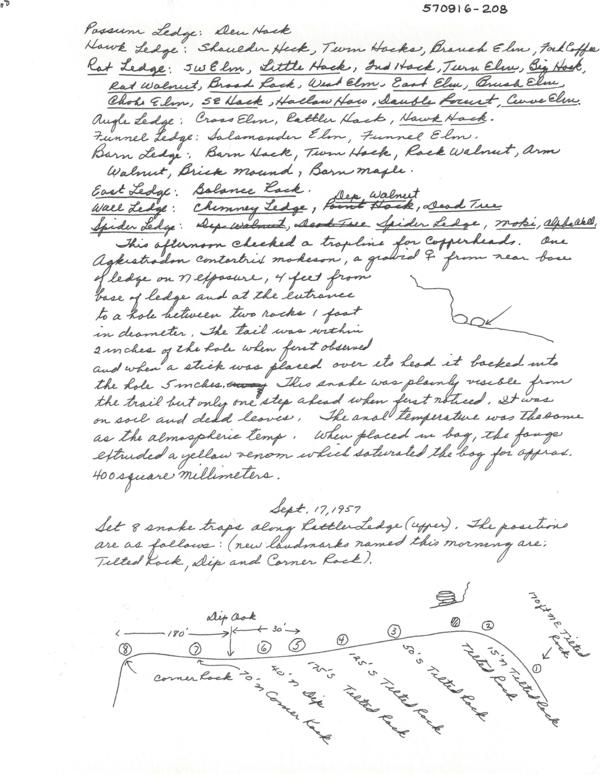 570916-208
Possum Ledge: Den Hack
Hawk Ledge: Shoulder Hack, Twin Hacks, Branch Elm, Fork Coffee
Rat Ledge: SW Elm, Little Hack, 2nd Hack, Turn Elm, Big Hack,
Rat Walnut, Broad Rock, West Elm, East Elm, Brush Elm
Choke Elm, SE Hack, Hollow How, Double Locust, Curve Elm.
Angle Ledge: Cross Elm, Rattler Hack, Hawk Hack.
Funnel Ledge: Salamander Elm, Funnel Elm.
Barn Ledge: Barn Hack, Twin Hack, Rock Walnut, Arm
Walnut, Brick Mound, Barn Maple.
East Ledge: Balance Rock. Dep. Walnut
Wall Ledge: Chimney Ledge, Point Hack, Dead Tree
Spider Ledge: Dep Walnut, Dead Tree Spider Ledge, Moki, Alpha Wall,
This afternoon checked a trapline for Copperheads. One
Agkistrodon contortrix mokeson, a gravid ♀ from near base
of ledge on N exposure, 4 feet from
base of ledge and at the entrance
to a hole between two rocks 1 foot
in diameter. The tail was within
2 inches of the hole when first observed
and when a stick was placed over its head it backed into
the hole 5 inches. This snake was plainly visible from
the trail but only one step ahead when first noticed. It was
on soil and dead leaves. The anal temperature was the same
as the atmospheric temp. When placed in bag, the fangs
extruded a yellow venom which saturated the bag for approx.
400 square millimeters.
Sept. 17, 1957
Set 8 snake traps along Rattler Ledge (upper). The positions
are as follows: (new landmarks named this morning are:
Tilted Rock, Dip and Corner Rock).
Dip Oak
180' 30'
8 7 6 5 4 3 2 1
Corner Rock
70' N Corner Rock
40' N Dip
175' S Tilted Rock
125' S Tilted Rock
50' S Tilted Rock
Tilted Rock
15' N Tilted Rock
NE Tilted Rock